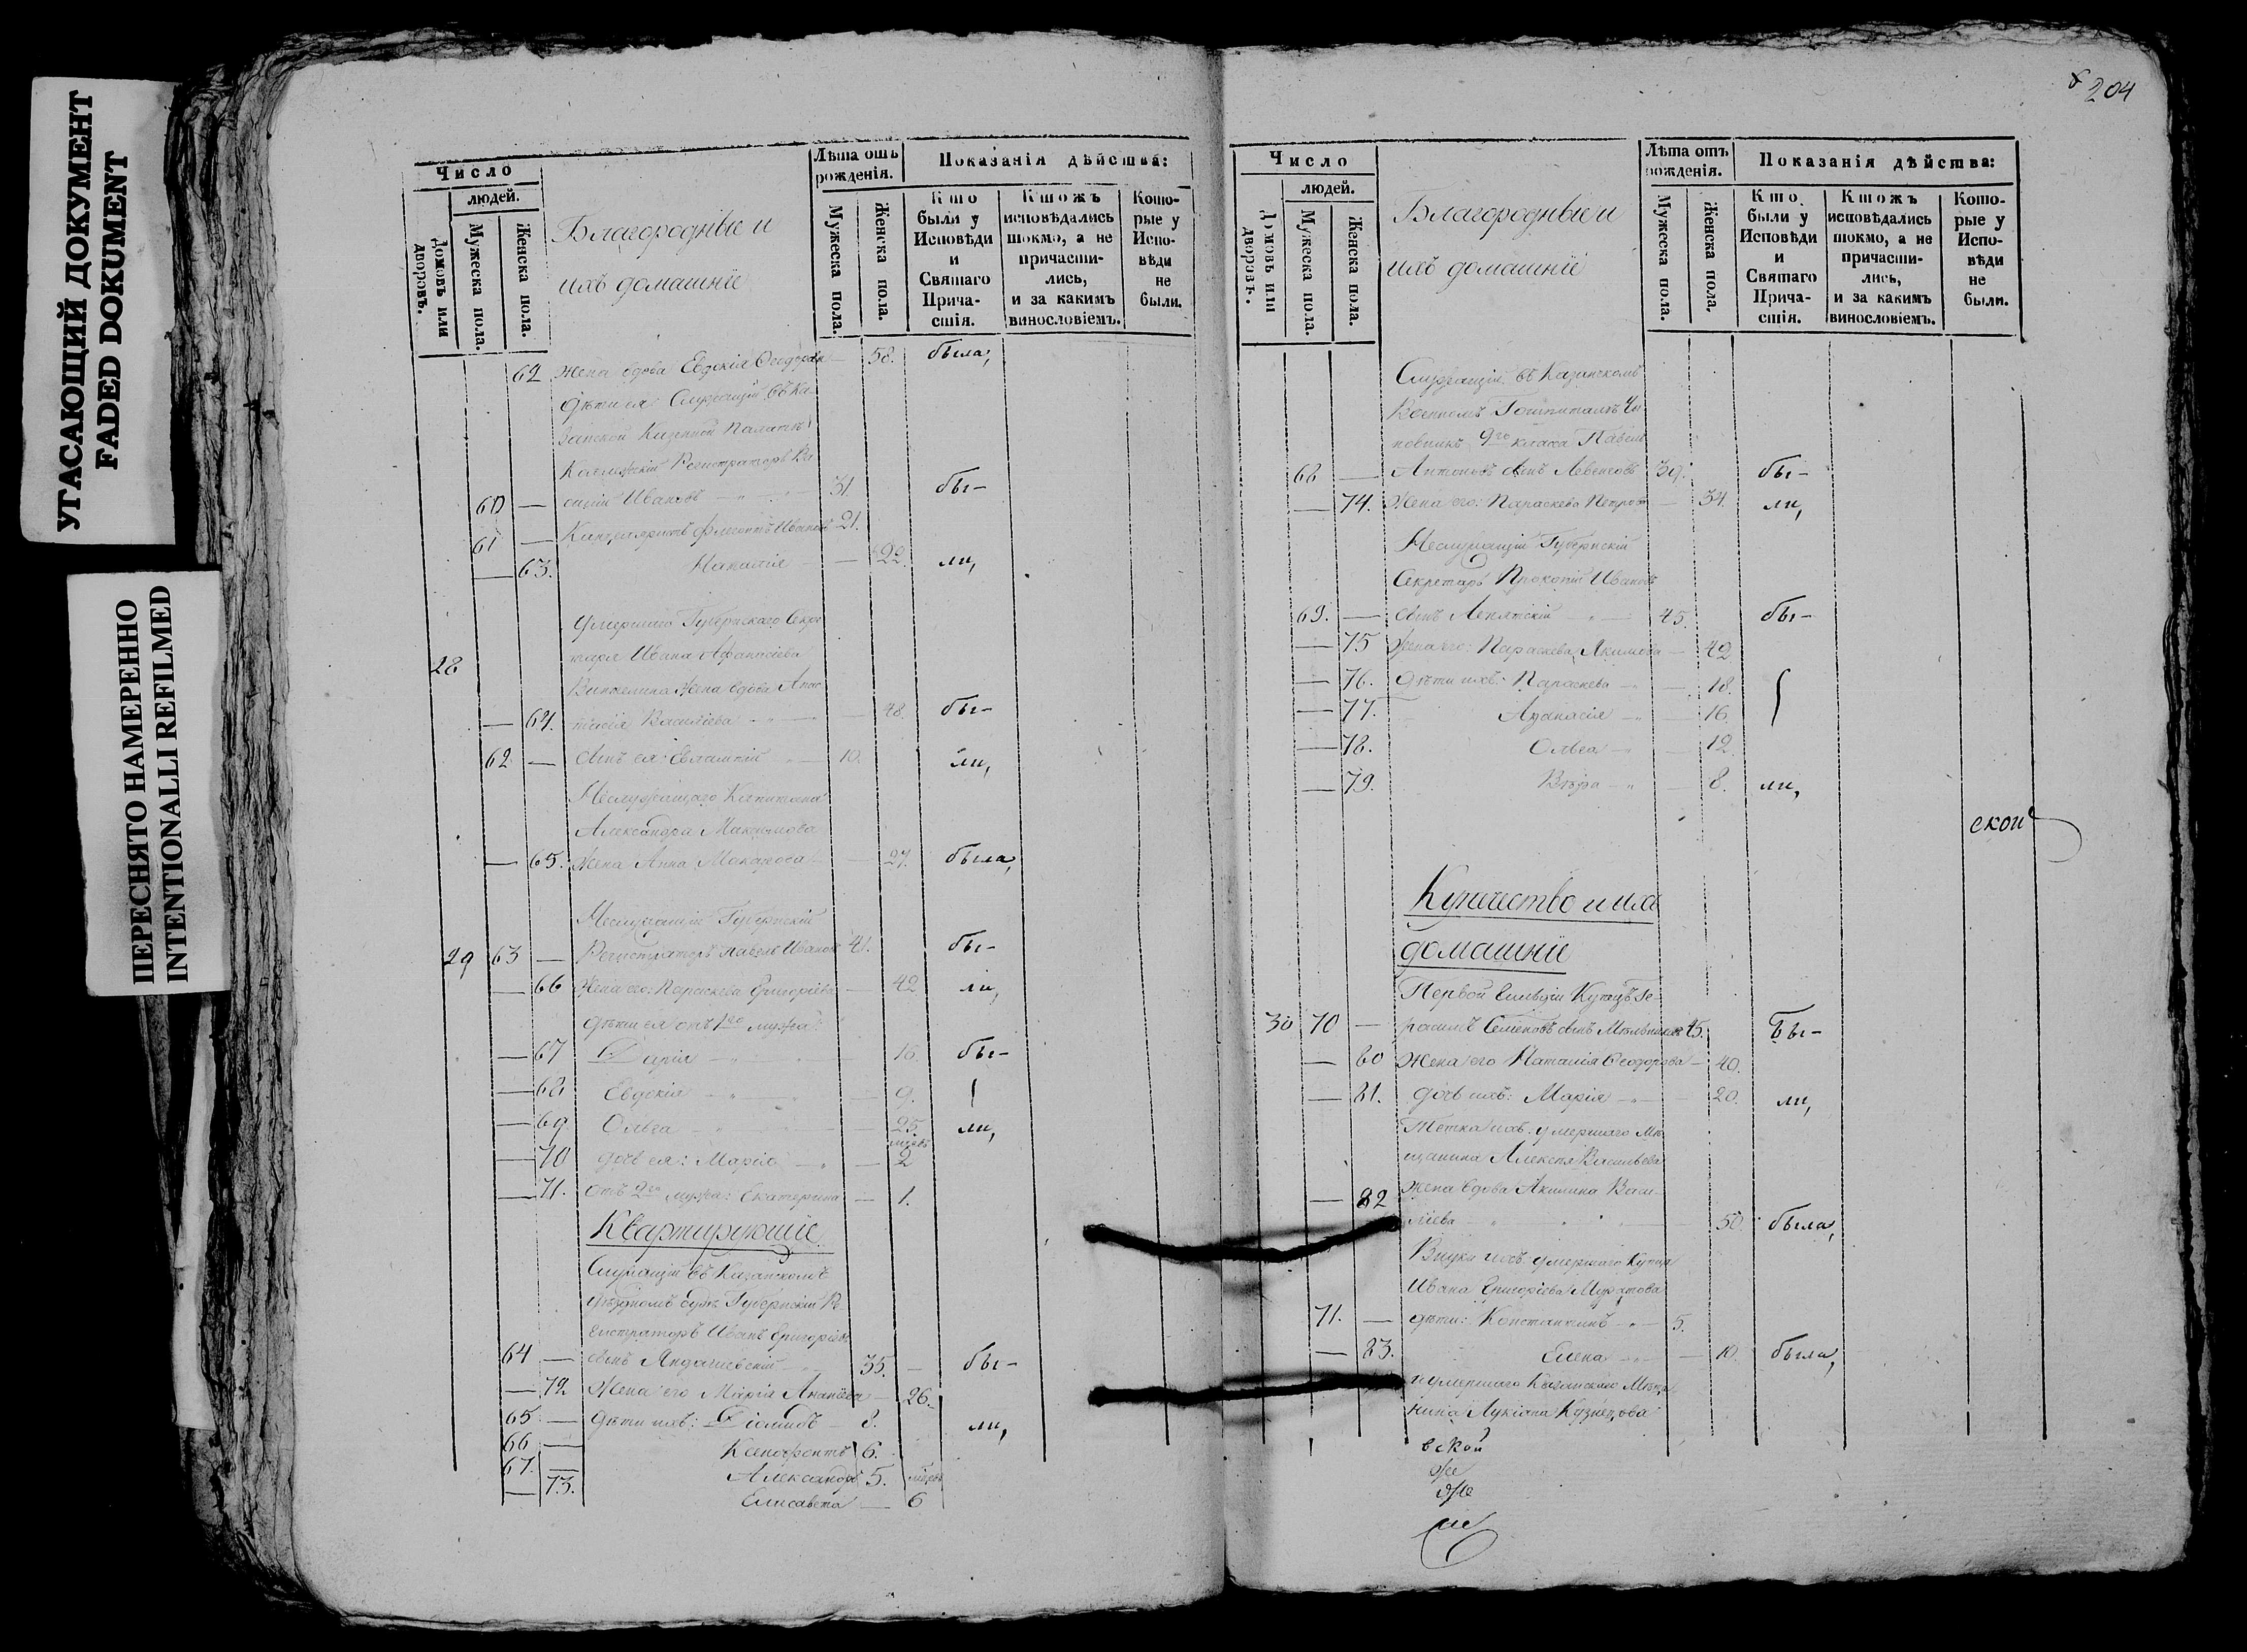 УГАСАЮЩИЙ ДОКУМЕНТ
FADED DOKUMENT
ПЕРЕСНЯТО НАМЕРЕННО
INTENTIONALLI REFILMED
Число
людей.
Домовъ или дворовъ.
Мужеска пола.
Женска пола.
Благородные и
ихъ домашніе
Лѣта отъ рожденія.
Мужеска пола.
Женска пола.
Показанія дѣйства:
Кто были у Исповѣди и Святаго Прича-стія.
Ктожъ исповѣдались токмо, а не причасти-лись, и за какимъ винословіемъ.
Кото-рые у Испо-вѣди не были.
62 жена вдова Евдокія Ѳеодоро — 58. была,
Дѣти ея: Служащій въ Ка-
занской Казенной Палатѣ
Коллежскій Регистраторъ Ва
60 — силій Ивановъ — 31 бы-
61 — Канцеляристъ Ивановъ 21.
— 63. Наталія — 22. ли,
Умершаго Губернскаго Секре
28 таря Ивана Афанасіева
жена вдова Анас
— 64. тасія Васильева — 48. бы-
62. — Сынъ ея: Евлампій — 10. ли,
Неслужащаго Капитана
Александра Максимова
— 65. жена Анна Макарова 27. была,
Неслужащій Губернскій
29 63 — Регистраторъ Павелъ Ивановъ 41. бы-
— 66 Жена его: Параскева Григоріева — 42 ли,
Дѣти ея отъ 1го мужа:
— 67 Дарія — 16. бы-
— 68 Евдокія — 9.
— 69 Ольга — 25. ли,
— 70 Дочь ея: Марія — 2
— 71. Отъ 2го мужа: Екатерина — 1.
Квартирующіе
Служащій въ Казанскомъ
уѣздномъ судѣ Губернскій Ре
гистраторъ Иванъ Григоріевъ
64 — сынъ 35. — бы-
— 72 Жена его Марія Ананіева — 26.
65 — Дѣти ихъ: Діомидъ — 8. ли,
66 — Ксенофонтъ 6.
67. — Александръ 5.
— 73. Елисавета — 6
204
Число
людей.
Домовъ или дворовъ.
Мужеска пола.
Женска пола.
Благородные и
ихъ домашніе
Лѣта отъ рожденія.
Мужеска пола.
Женска пола.
Показанія дѣйства:
Кто были у Исповѣди и Святаго Прича-стія.
Ктожъ исповѣдались токмо, а не причасти-лись, и за какимъ винословіемъ.
Кото-рые у Испо-вѣди не были.
Служащій въ Казанскомъ
Военномъ Гошпиталѣ Чи
новникъ 9го класса Павелъ
68 — Антоновъ сынъ 39. бы-
— 74. Жена его: Параскева Петрова — 34. ли,
Неслужащій Губернскій
Секретарь Прокопій Ивановъ
69. — сынъ 45. бы-
— 75 Жена его: Параскева Якимова — 42
— 76. Дѣти ихъ: Параскева — 18.
— 77. — 16.
— 78. Ольга — 12
— 79. Вѣра — 8. ли,
ской
Купечество и ихъ
домашніе
Первой Гильдіи Купецъ Ге-
30 70 — расимъ Семеновъ сынъ Мельниковъ 45. Бы-
— 80 Жена его Наталія Ѳеодорова — 40.
— 81. Дочь ихъ: Марія — 20. ли,
Тетка ихъ умершаго Мѣ
щанина Алексѣя Васильева
— 82 Жена вдова Акилина Васи-
лiева — 50 была,
Внуки ихъ умершаго Купца
Ивана Григоріева Муратова
71. — дѣти: Константинъ — 5.
— 83. Елена — 10. была,
умершаго Казанскаго Мѣща
нина Лукіана Кузнецова